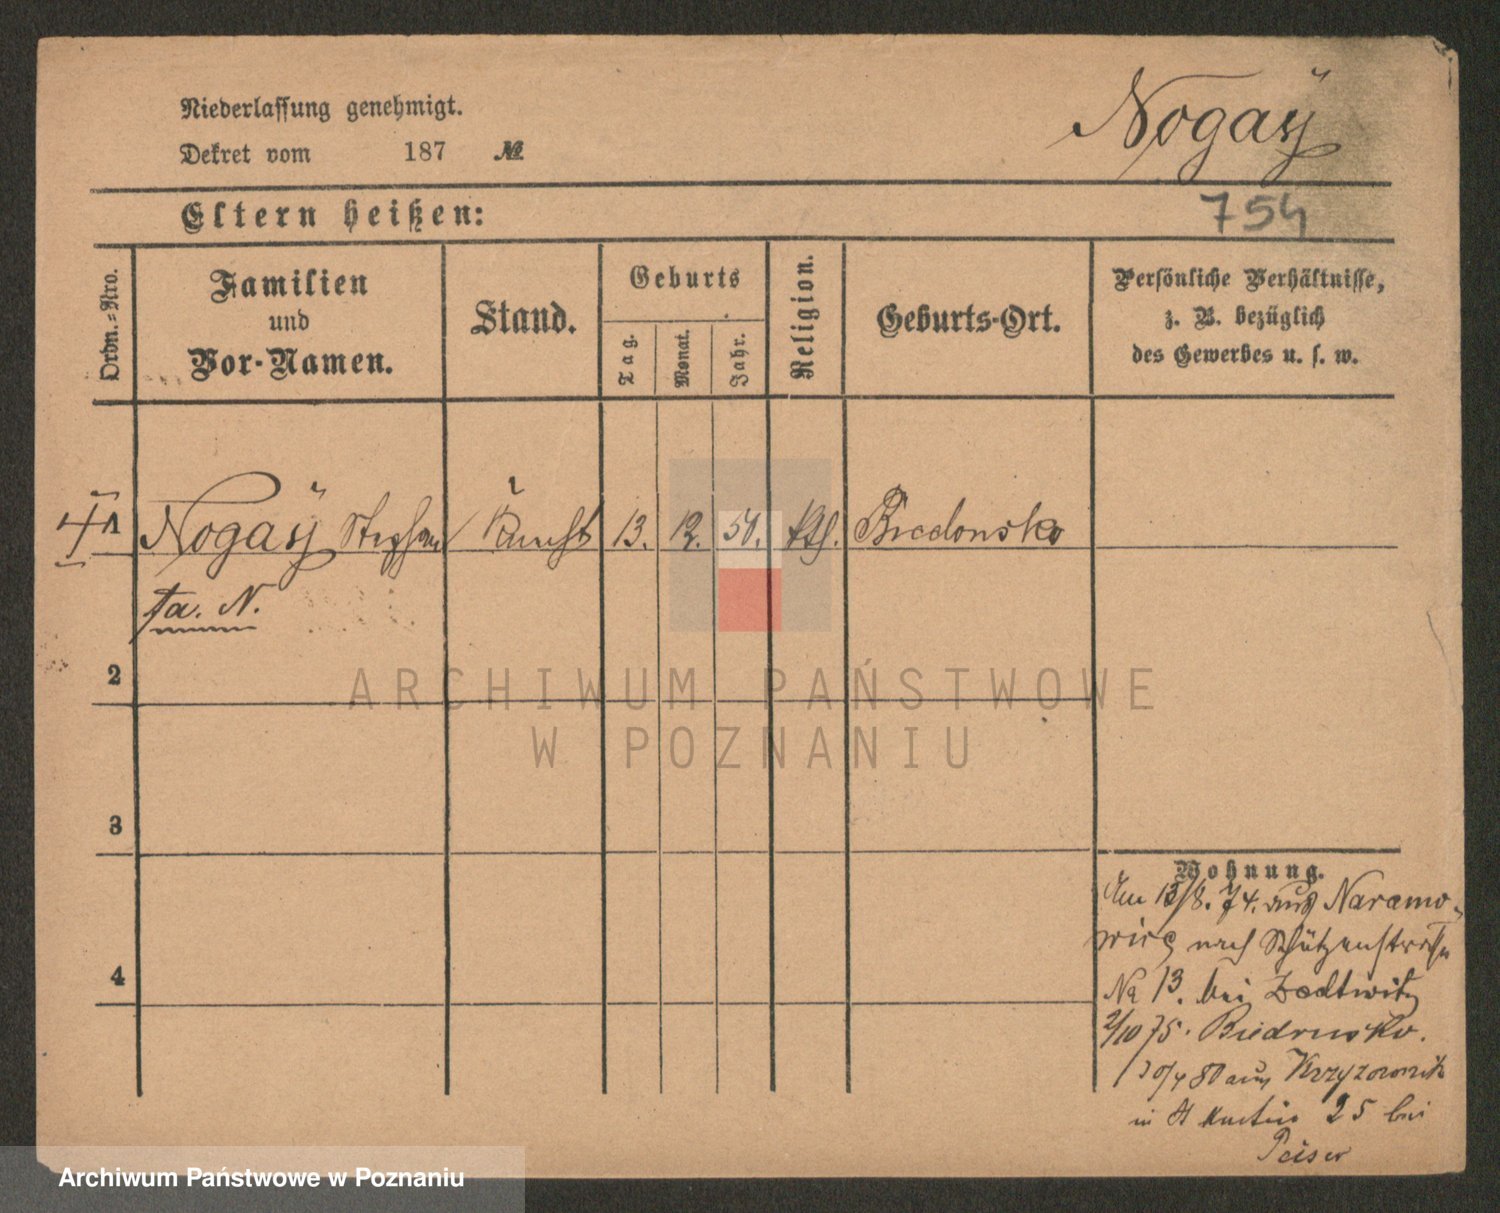 Niederlassung genehmigt.
Dekret vom 187 №
Nogaÿ
754
Eltern heißen:
Ordn.-Nro.
Familien
und
Vor-Namen.
Stand.
Geburts
Tag.
Monat.
Jahr.
Religion.
Geburts-Ort.
Persönliche Verhältnisse,
z. B. bezüglich
des Gewerbes u. s. w.
1 Nogaÿ Stephan Knecht 13. 12. 51. kth. Biedonsko
N.
2
ARCHIWUM PAŃSTWOWE
W POZNANIU
3
Wohnung.
Am 13/8. 74. aus Naramo-
wice nach Schützenstraße
No 13. bei
4
2/10 75. Biedrusko.
80 aus
in St Martin 25 bei
Peiser
Archiwum Państwowe w Poznaniu